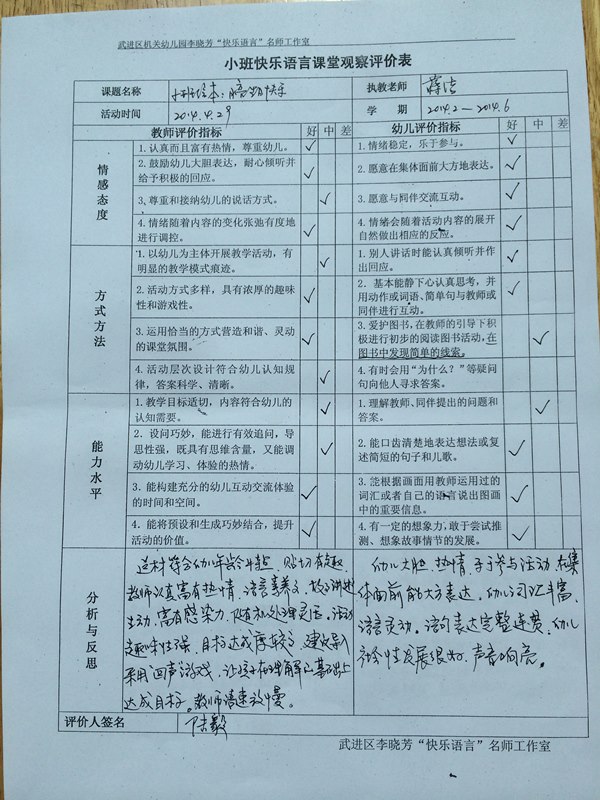 武进区机关幼儿园李晓芳“快乐语言”名师工作室
小班快乐语言课堂观察评价表
课题名称 小班绘本： 执教老师
活动时间 2014.4.29 学 期 2014.2—2014.6
教师评价指标 好 中 差 幼儿评价指标 好 中 差
情感态度
1.认真而且富有热情，尊重幼儿。 ✓ 1.情绪稳定，乐于参与。 ✓
2.鼓励幼儿大胆表达，耐心倾听并给予积极的回应。 ✓ 2.愿意在集体面前大方地表达。 ✓
3.尊重和接纳幼儿的说话方式。 ✓ 3.愿意与同伴交流互动。 ✓
4.情绪随着内容的变化张弛有度地进行调控。 ✓ 4.情绪会随着活动内容的展开自然做出相应的反应。 ✓
方式方法
1.以幼儿为主体开展教学活动，有明显的教学模式痕迹。 ✓ 1.别人讲话时能认真倾听并作出回应。 ✓
2.活动方式多样，具有浓厚的趣味性和游戏性。 ✓ 2.基本能静下心认真思考，并用动作或词语、简单句与教师或同伴进行互动。 ✓
3.运用恰当的方式营造和谐、灵动的课堂氛围。 ✓ 3.爱护图书，在教师的引导下积极进行初步的阅读图书活动，在图书中发现简单的线索。 ✓
4.活动层次设计符合幼儿认知规律，答案科学、清晰。 ✓ 4.有时会用“为什么？”等疑问句向他人寻求答案。
能力水平
1.教学目标适切，内容符合幼儿的认知需要。 ✓ 1.理解教师、同伴提出的问题和答案。 ✓
2.设问巧妙，能进行有效追问，导思性强，既具有思维含量，又能调动幼儿学习、体验的热情。 ✓ 2.能口齿清楚地表达想法或复述简短的句子和儿歌。 ✓
3.能构建充分的幼儿互动交流体验的时间和空间。 ✓ 3.能根据画面用教师运用过的词汇或者自己的语言说出图画中的重要信息。 ✓
4.能将预设和生成巧妙结合，提升活动的价值。 ✓ 4.有一定的想象力，敢于尝试推测、想象故事情节的发展。 ✓
分析与反思
选材符合幼儿年龄特点，贴切有趣。
教师认真富有热情，语言素养高，故事讲述
生动，富有感染力，随机处理灵活，活动
趣味性强，目标达成度较高，建议导入
采用回声游戏，让孩子在理解的基础上
达成目标。教师语速放慢。
幼儿大胆、热情，乐于参与活动，在集
体面前能大方表达，幼儿词汇丰富，
语言灵动。语句表达完整连贯，幼儿
社会性发展很好，声音响亮。
评价人签名
武进区李晓芳“快乐语言”名师工作室